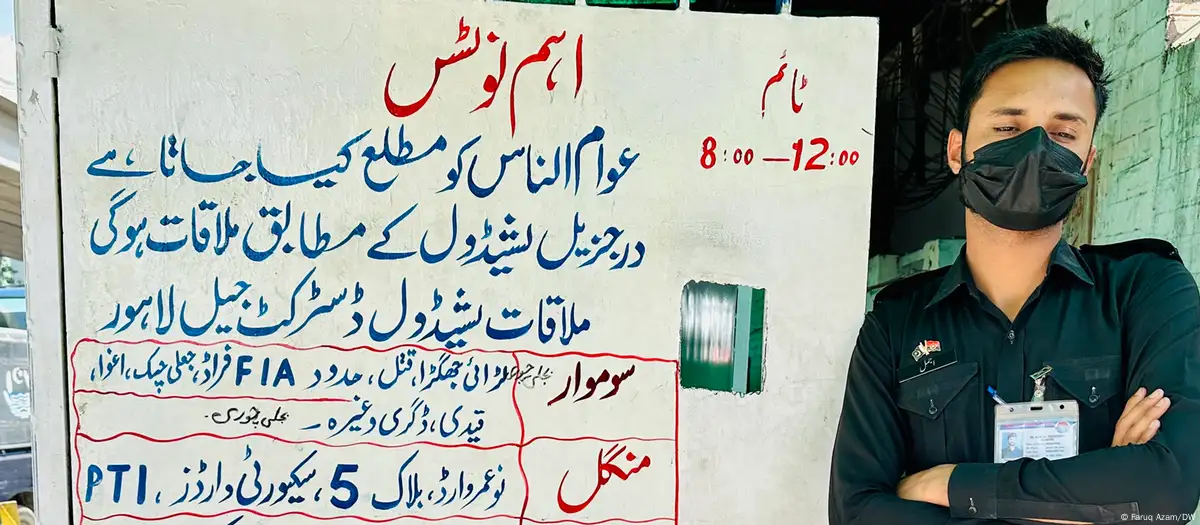 اہم نوٹس
ٹائم
8:00 – 12:00
عوام الناس کو مطلع کیا جاتا ہے
درجزیل شیڈول کے مطابق ملاقات ہوگی
ملاقات شیڈول ڈسٹرکٹ جیل لاہور
سوموار
لڑائی جھگڑا، قتل، حدود FIA فراڈ، جعلی چیک، اغوا،
قیدی، ڈگری وغیرہ - بجلی چوری-
منگل
نوعمر وارڈ، بلاک 5، سیکیورٹی وارڈز، PTI
© Faruq Azam/DW